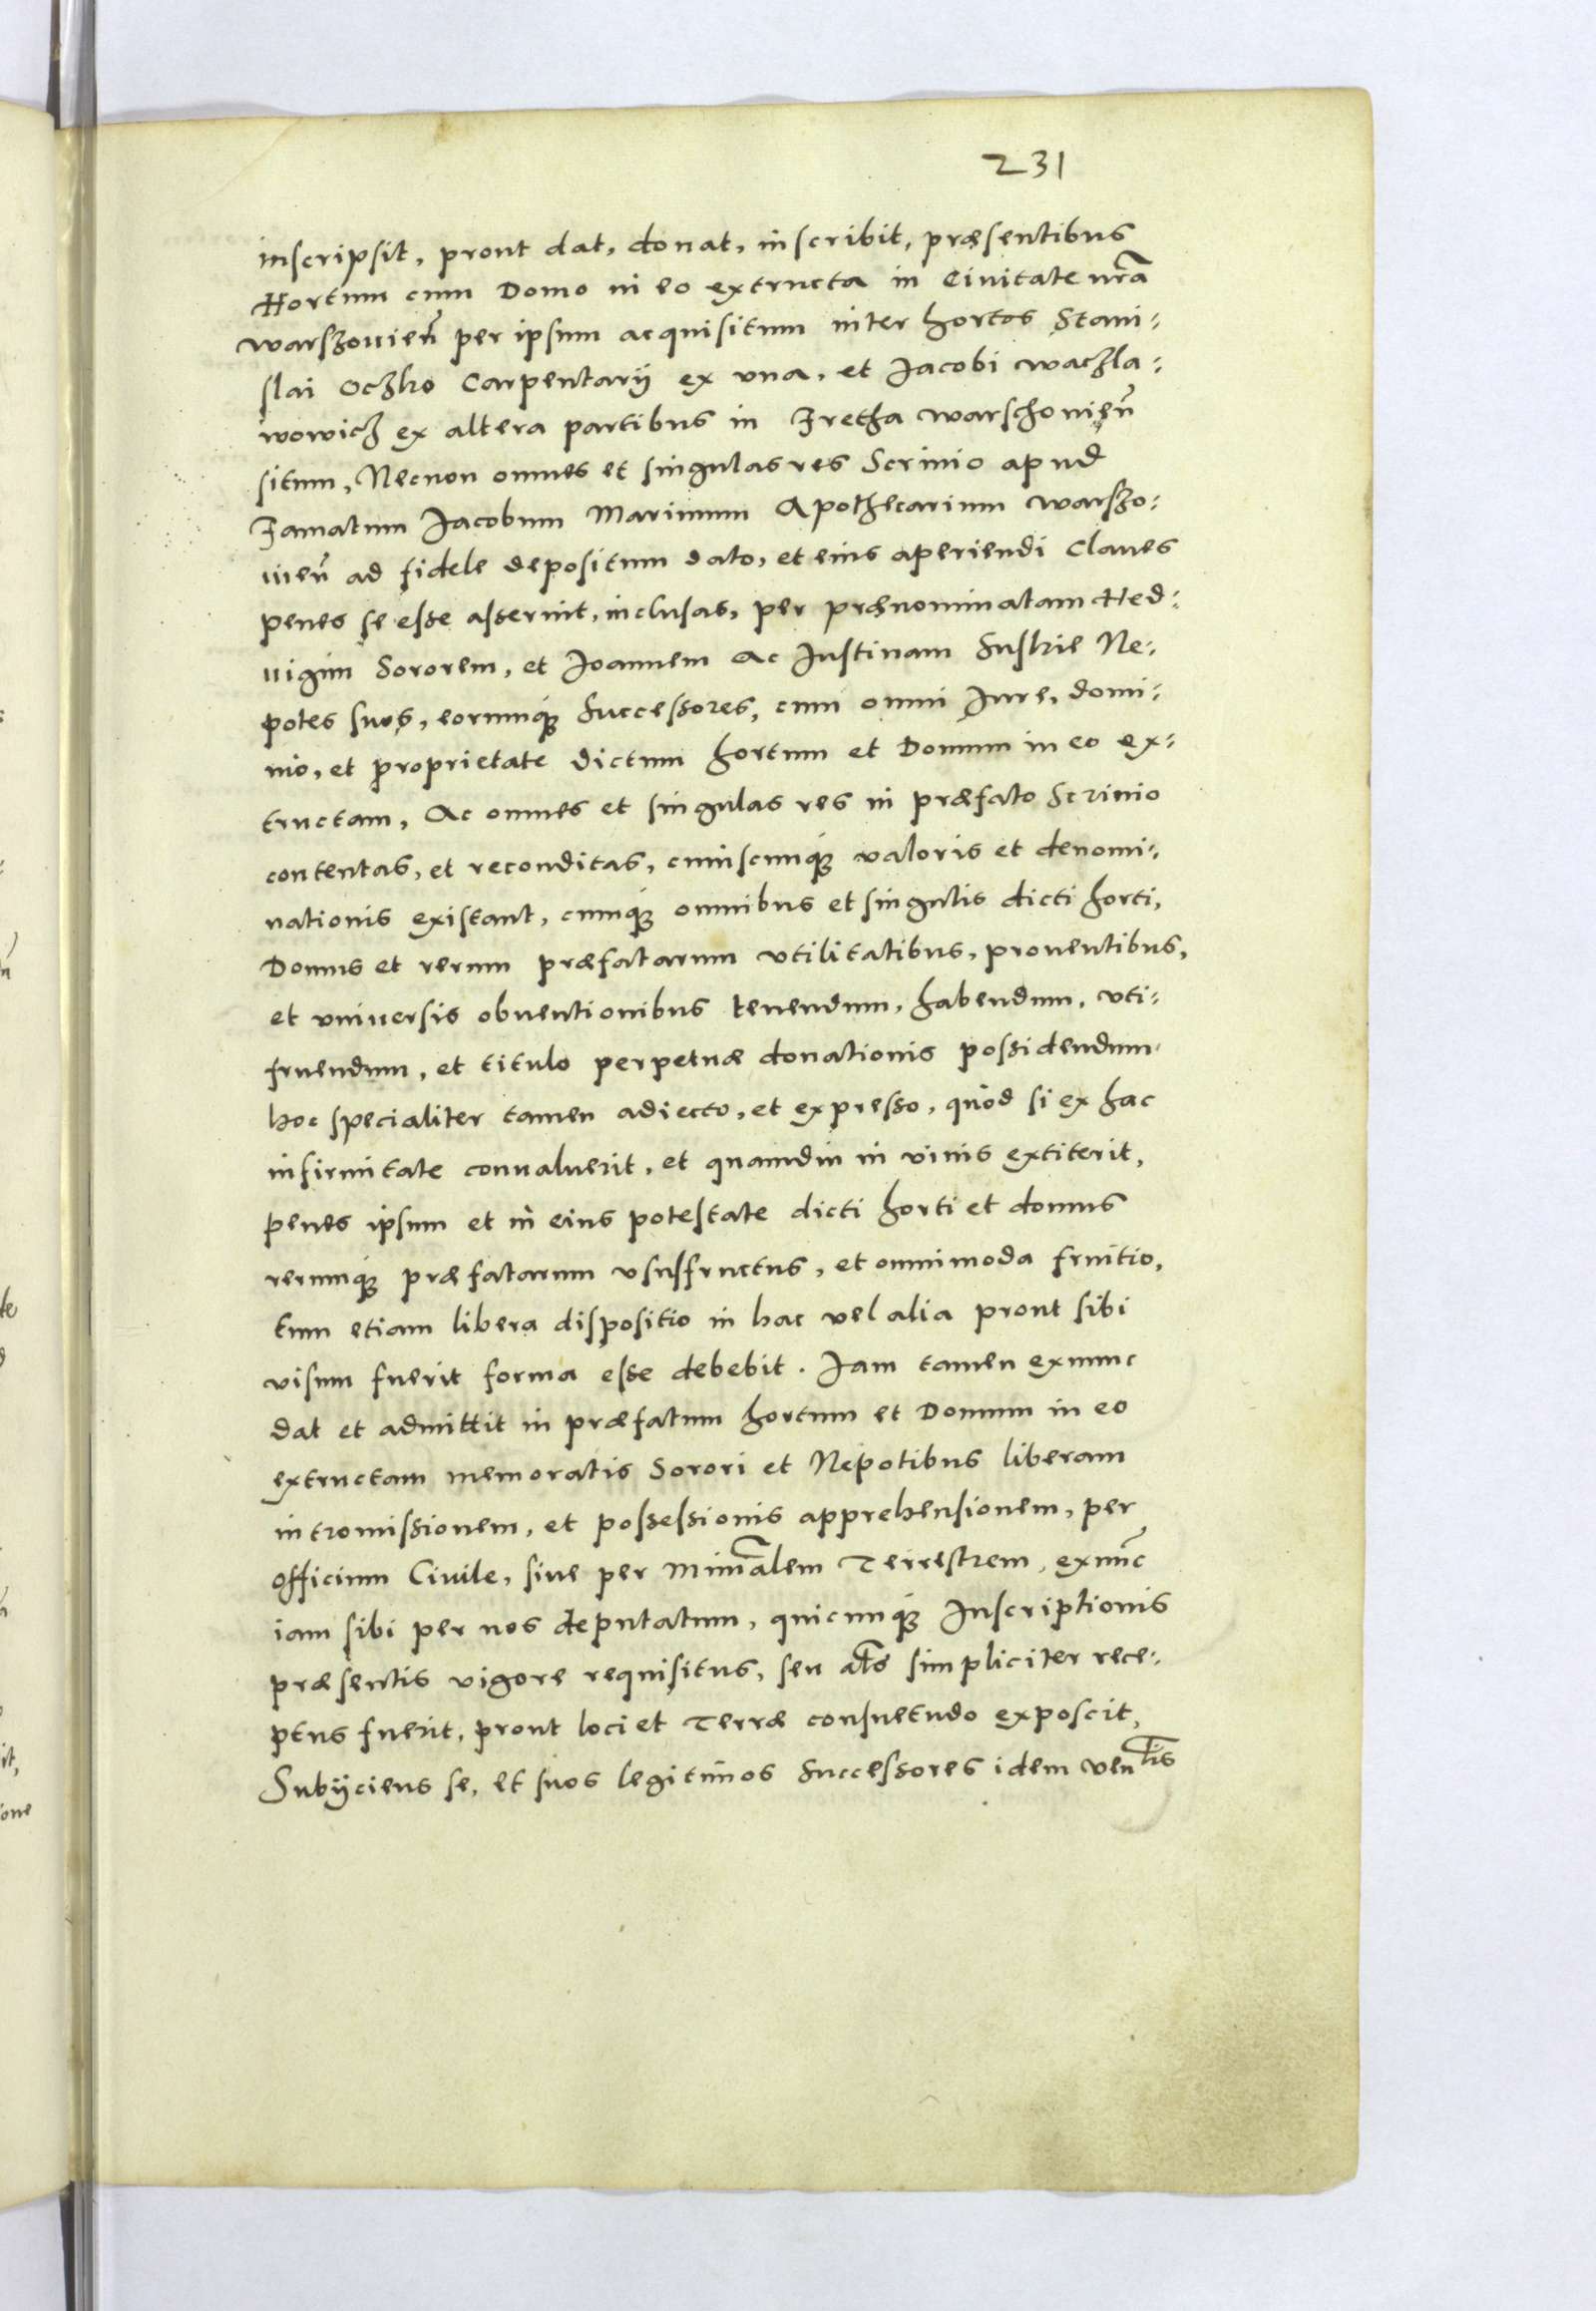 231
inscripsit, prout dat, donat, inscribit, præsentibus
Hortum cum Domo in eo extructa in Ciuitate nr̃a
warszouien̄ per ipsum acquisitum inter hortos Stani:
slai Oczko Carpentarij ex vna, et Jacobi waczla:
wowicz ex altera partibus in Fretha warschouien̄
situm, Necnon omnes et singulas res Scrinio apud
Famatum Jacobum Marinum Apothecarium warszo:
uien̄ ad fidele depositum dato, et eius aperiendi Claues
penes se esse asseruit, inclusas, per prænominatam Hed:
uigim Sororem, et Joannem Ac Justinam Suskie Ne:
potes suos, eorumq́ꝫ Successores, cum omni Jure, domi:
nio, et proprietate dictum hortum et Domum in eo ex:
tructam, Ac omnes et singulas res in præfato Scrinio
contentas, et reconditas, cuiuscumq́ꝫ valoris et denomi:
nationis existant, cumq́ꝫ omnibus et singulis dicti horti,
Domus et rerum præfatarum vtilitatibus, prouentibus,
et vniuersis obuentionibus tenendum, habendum, vti:
fruendum, et titulo perpetuæ donationis possidendum.
hoc specialiter tamen adiecto, et expresso, quòd si ex hac
infirmitate conualuerit, et quamdiu in viuis extiterit,
penes ipsum et in eius potestate dicti horti et domus
rerumq́ꝫ præfatarum vsusfructus, et omnimoda fruitio,
tum etiam libera dispositio in hac vel alia prout sibi
visum fuerit forma esse debebit. Jam tamen exnunc
dat et admittit in præfatum hortum et Domum in eo
extructam memoratis Sorori et Nepotibus liberam
intromissionem, et possessionis apprehensionem, per
officium Ciuile, siue per Mim̃alem Terrestrem, exnunc
iam sibi per nos deputatum, quicumq́ꝫ Inscriptionis
præsentis vigore requisitus, seu al̃s simpliciter rece:
ptus fuerit, prout loci et Terræ consuetudo exposcit,
Subijciens se, et suos legitimos Successores idem ven̄lis